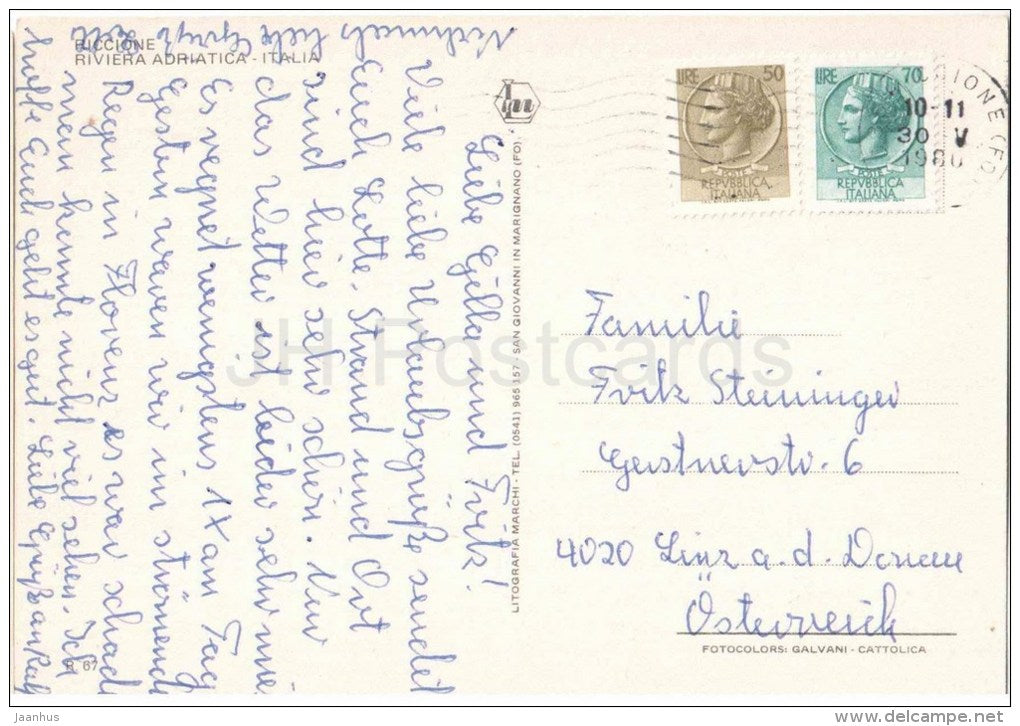 RICCIONE
RIVIERA ADRIATICA - ITALIA
Liebe Gella und Fritz!
Viele liebe Urlaubsgrüße sendet
Euch Lotte. Strand und Ort
sind hier sehr schön. Nur
das Wetter ist leider sehr mies
Es regnet wenigstens 1x am Tag
Gestern waren wir im strömenden
Regen in Florenz es war schade
man konnte nicht viel sehen. Ich
hoffe Euch geht es gut. Liebe Grüße an
Nochmals liebe Grüße
LITOGRAFIA MARCHI - TEL. (0541) 965 157 - SAN GIOVANNI IN MARIGNANO (FO)
LIRE 50
POSTE
REPVBBLICA
ITALIANA
LIRE 70
POSTE
REPVBBLICA
ITALIANA
10-11
30 V
1980
Familie
Fritz Steininger
Gerstnerstr. 6
4020 Linz a. d. Donau
Österreich
FOTOCOLORS: GALVANI - CATTOLICA
R 67
JH Postcards
Jaanhus
www.delcampe.net